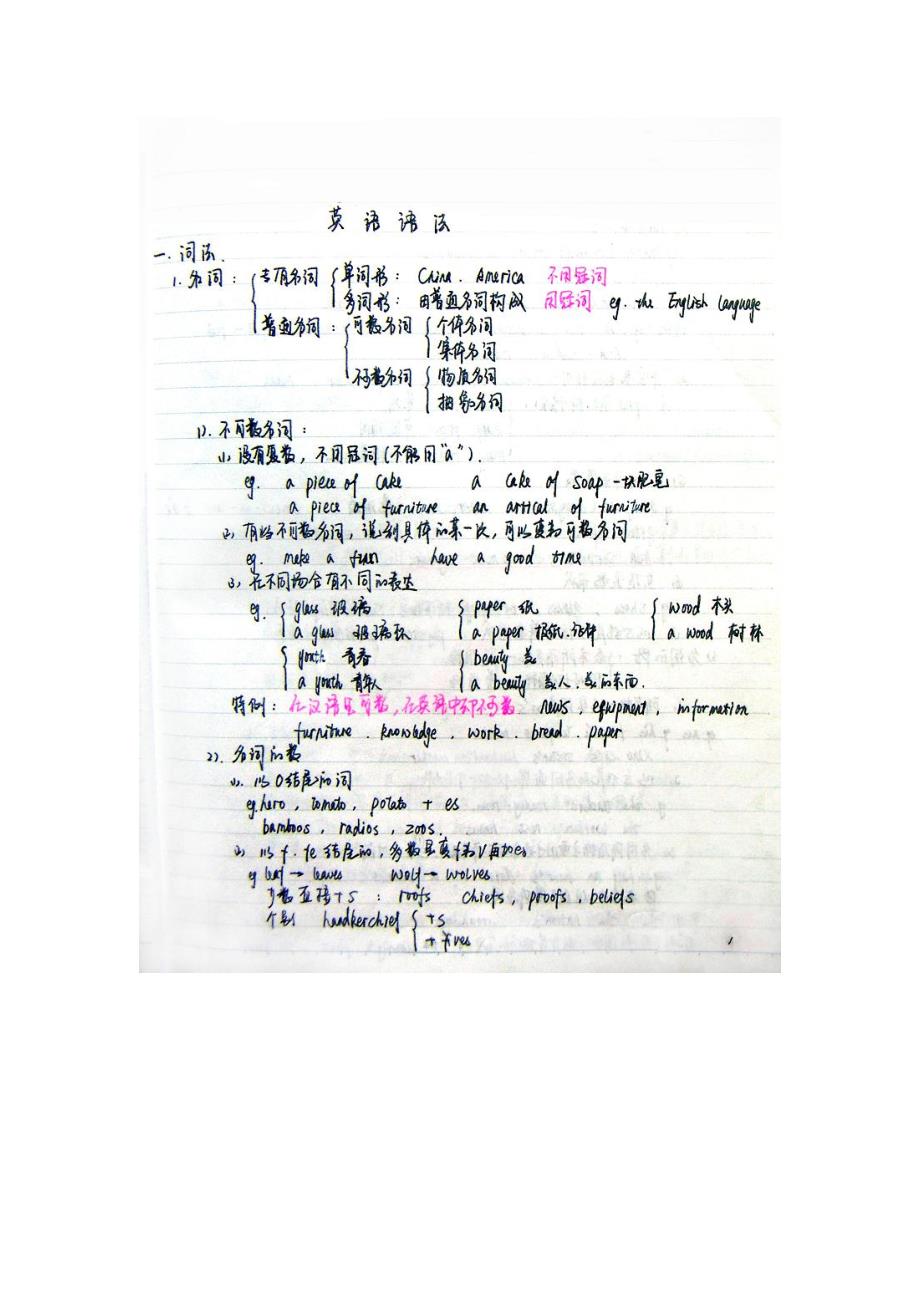 英语语法
一.词法.
1.名词: 专有名词 单词形: China. America 不用冠词
多词形: 由普通名词构成 用冠词 eg. the English language
普通名词: 可数名词 个体名词
集体名词
不可数名词 物质名词
抽象名词
1). 不可数名词:
(1) 没有复数, 不用冠词(不能用"a").
eg. a piece of cake a cake of soap 一块肥皂
a piece of furniture an artical of furniture
(2) 有些不可数名词, 说到具体的某一次, 可以变为可数名词
eg. make a have a good time
(3) 在不同场合有不同的表达
eg. glass 玻璃 paper 纸 wood 木头
a glass 玻璃杯 a paper 报纸.证件 a wood 树林
youth 青春 beauty 美
a youth 青年人 a beauty 美人.美的东西.
特例: 在汉语里可数, 在英语中却不可数 news, equipment, information
furniture. knowledge, work. bread. paper
2). 名词的数
(1). 以o结尾的词
eg. hero, tomato, potato + es
bamboos, radios, zoos.
(2) 以f.fe结尾的, 多数是变f为v再加es
eg leaf → leaves wolf → wolves
少数直接+s: roofs chiefs, proofs beliefs
个别 handkerchief +s
+ ves